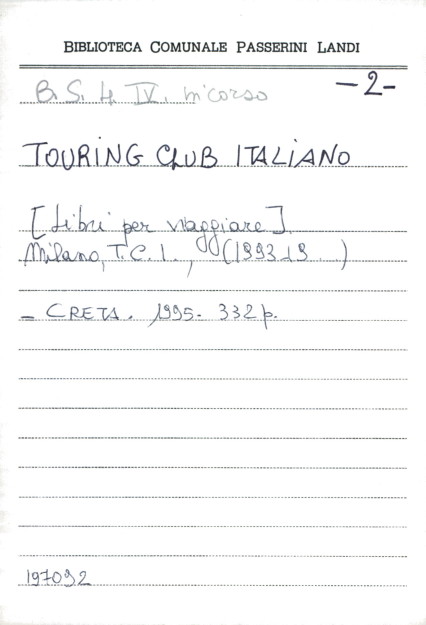 BIBLIOTECA COMUNALE PASSERINI LANDI
B.S. 4 IV. in corso
-2-
TOURING CLUB ITALIANO
[Libri per viaggiare]
Milano, T.C.I., (1993-19...)
- CRETA. 1995. 332 p.
197092